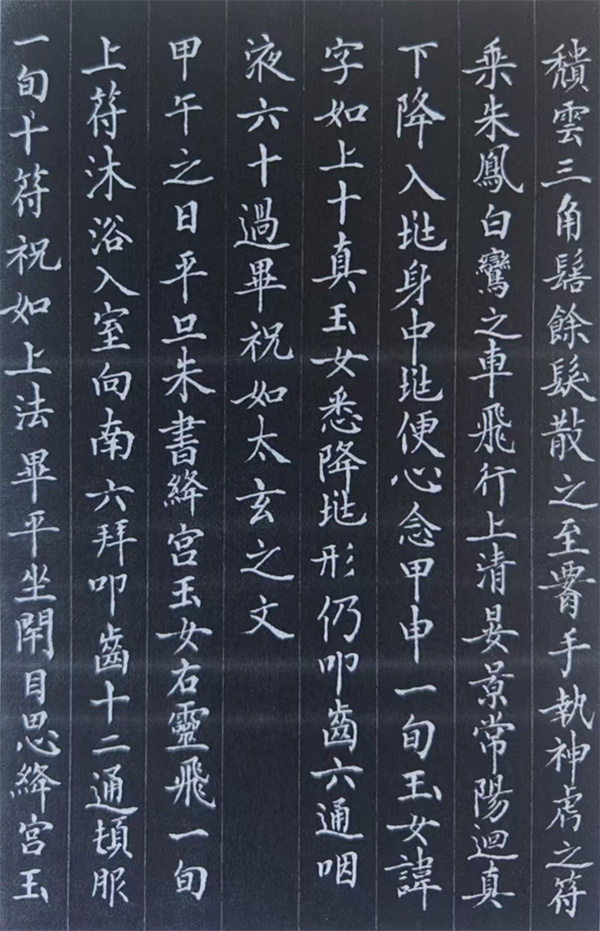 頹雲三角髻餘髮散之至𦝫手執神虎之符
乗朱鳳白鸞之車飛行上清晏景常陽迴真
下降入𡉏身中𡉏便心念甲申一旬玉女諱
字如上十真玉女悉降𡉏形仍叩齒六通咽
液六十過畢祝如太玄之文
甲午之日平旦朱書絳宫玉女右靈飛一旬
上符沐浴入室向南六拜叩齒十二通頓服
一旬十符祝如上法畢平坐閇目思絳宫玉